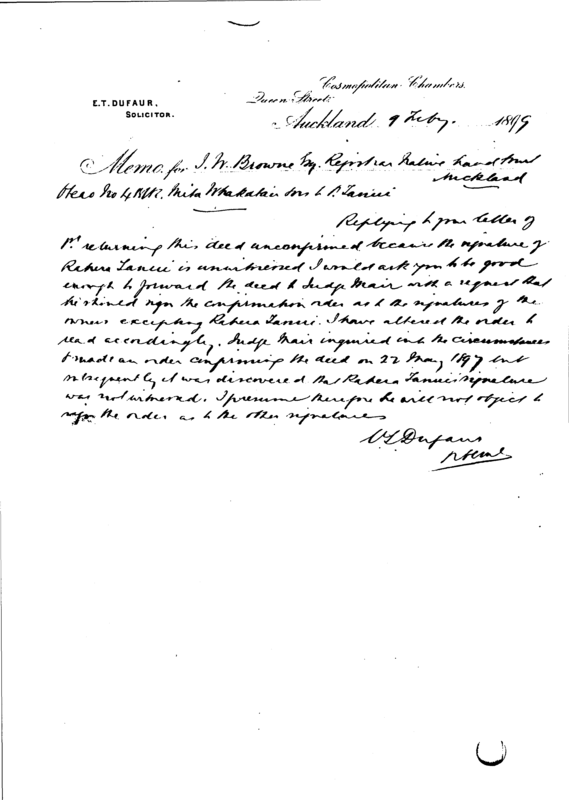 Cosmopolitan Chambers.
Queen Street
E.T. DUFAUR,
SOLICITOR.
Auckland 9 Feby. 1899
Memo. for J. W. Browne Esq. Registrar Native Land Court
Auckland
No 4 Mita Whakatau to P.
Replying to your letter of
1st returning this deed unconfirmed because the signature of
Rahera Tanui is unwitnessed I would ask you to be good
enough to forward the deed to Judge Mair with a request that
he should sign the confirmation order as to the signatures of the
owners excepting Rahera Tanui. I have altered the order to
read accordingly. Judge Mair inquired into the circumstances
& made an order confirming the deed on 22 May 1897 but
subsequently it was discovered that Rahera Tanui's signature
was not witnessed. I presume therefore he will not object to
sign the order as to the other signatures
Dufaur